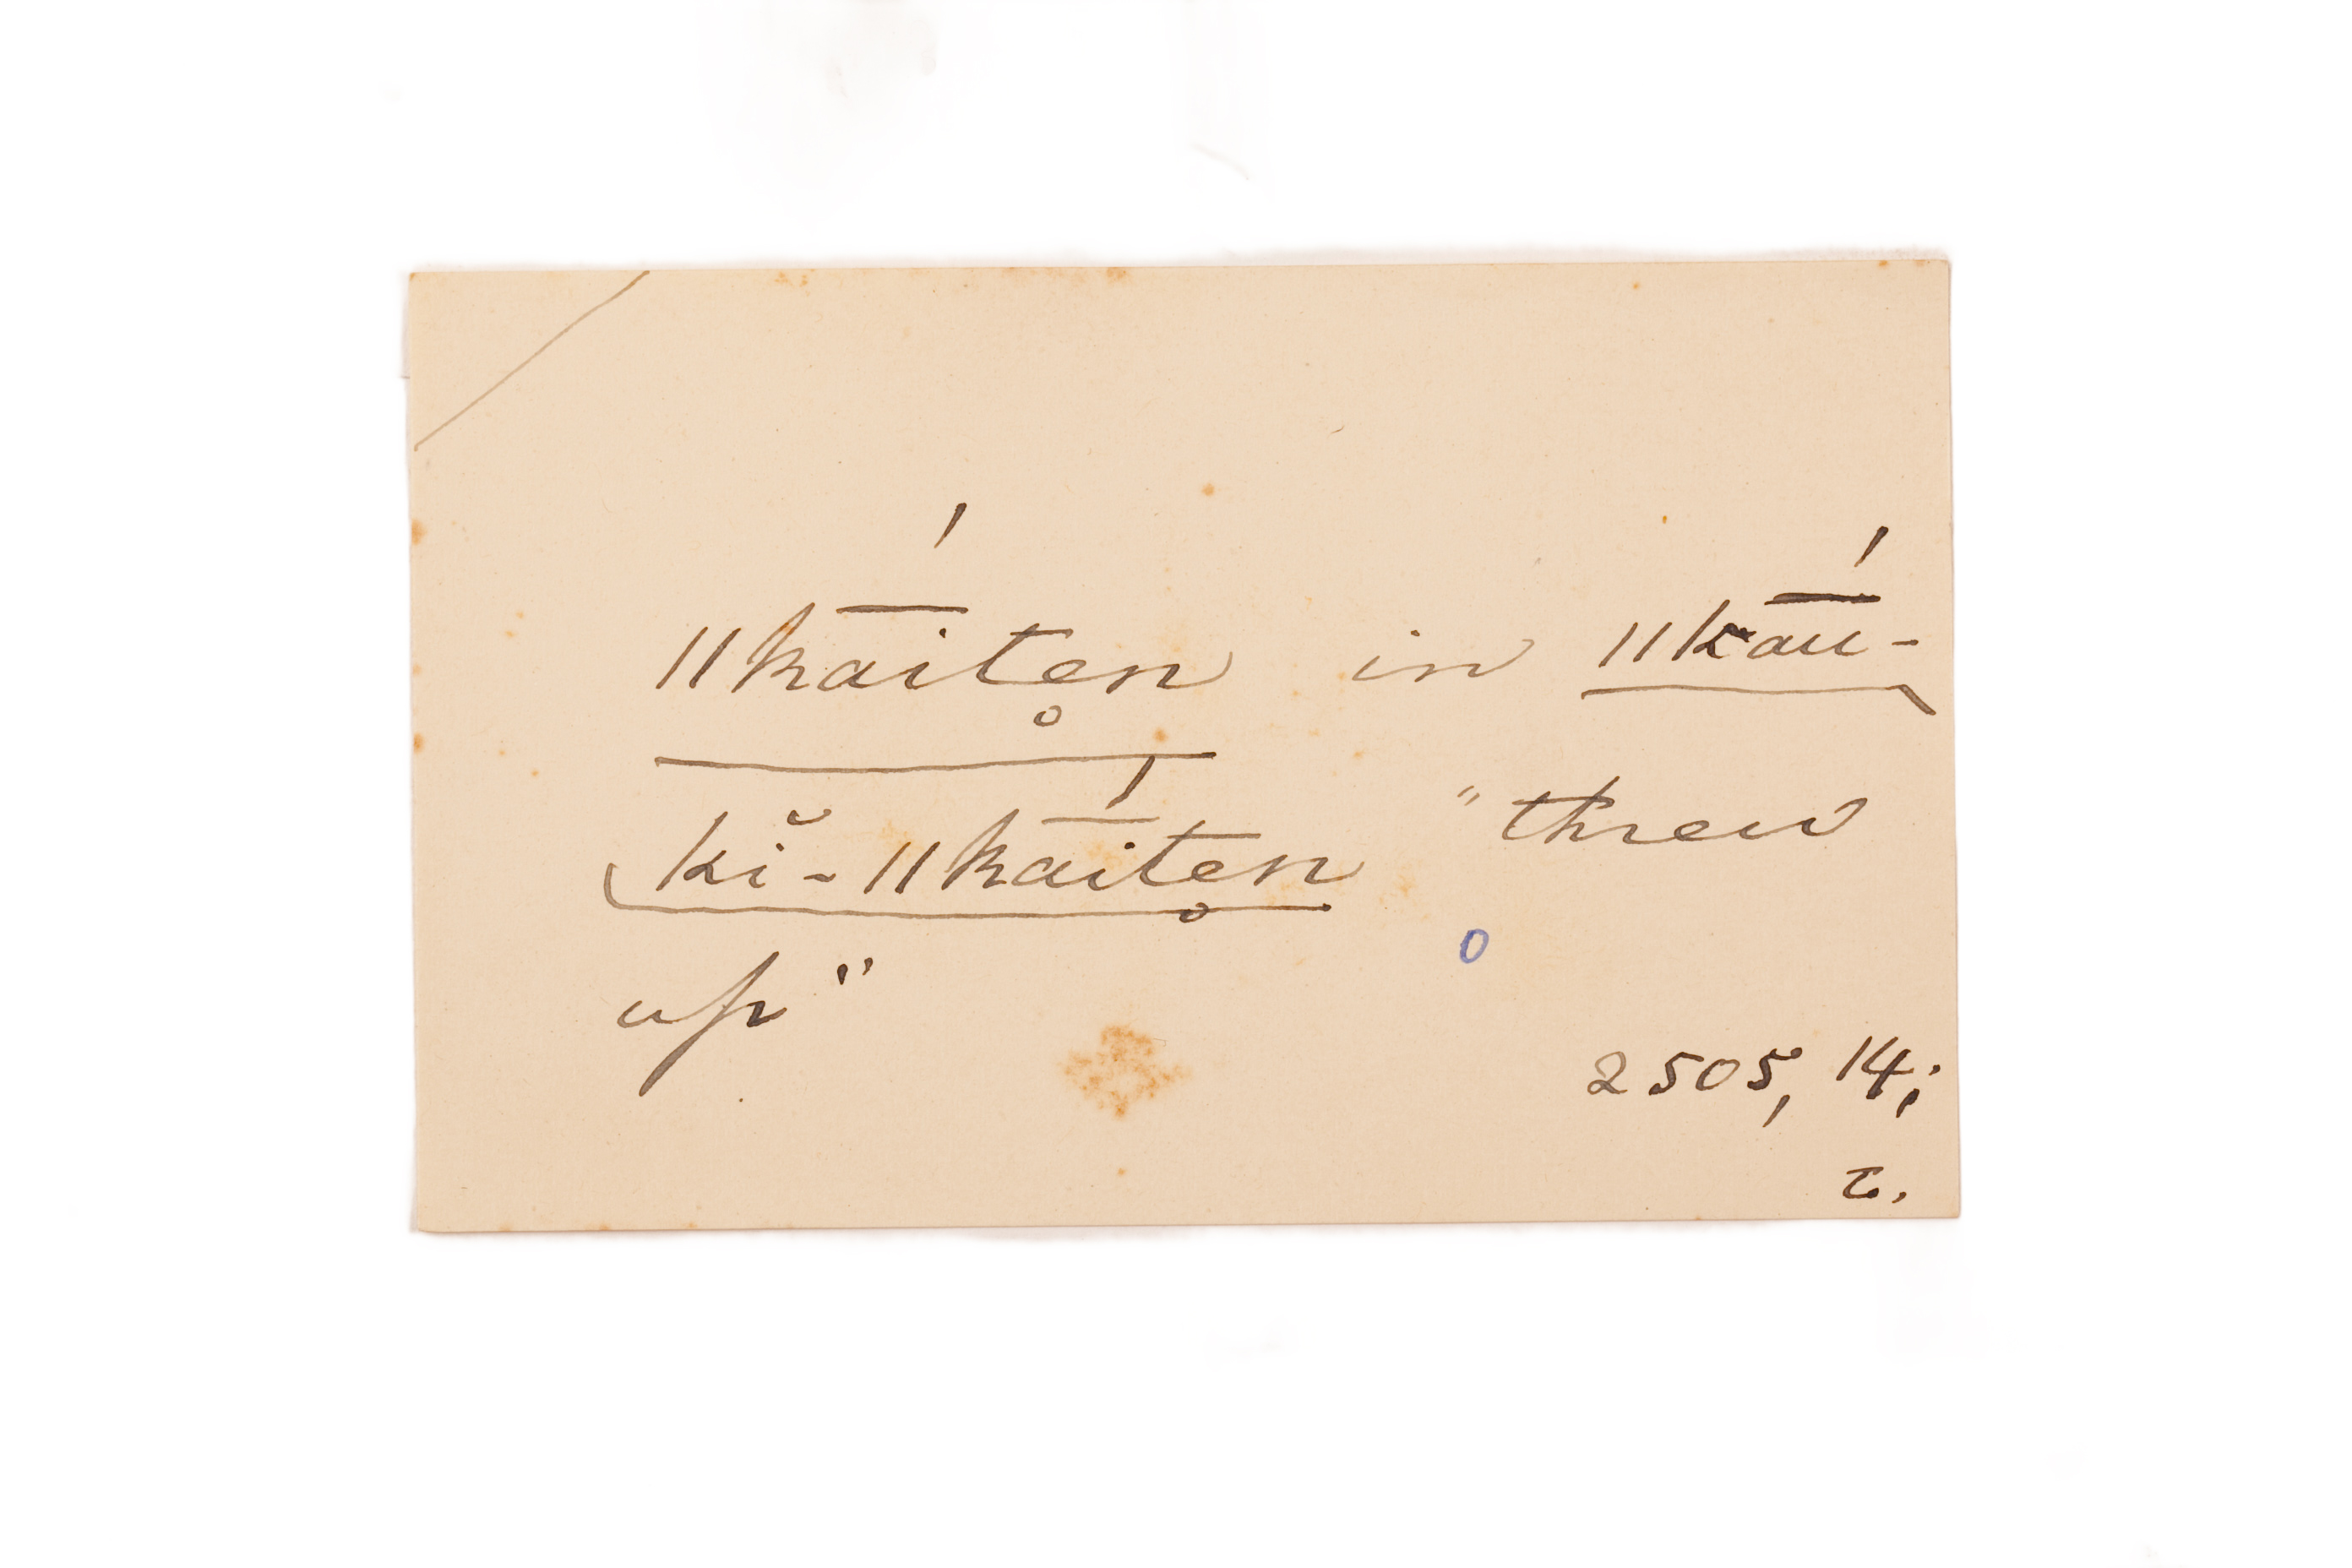 ǁka̅́iten̥ in ǁka̅́u-
kĭ-ǁka̅́iten̥ "threw
up"
2505, 14;
τ.